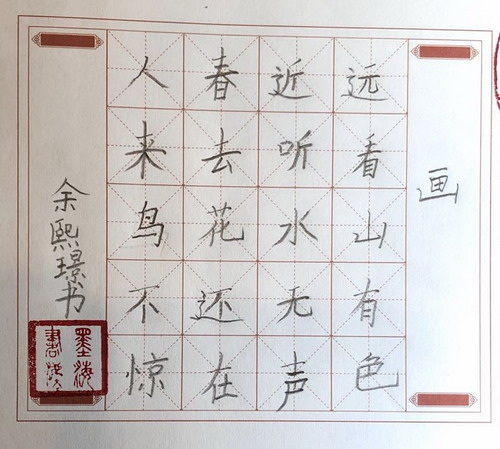 画
远看山有色
近听水无声
春去花还在
人来鸟不惊
余熙璟书
墨海